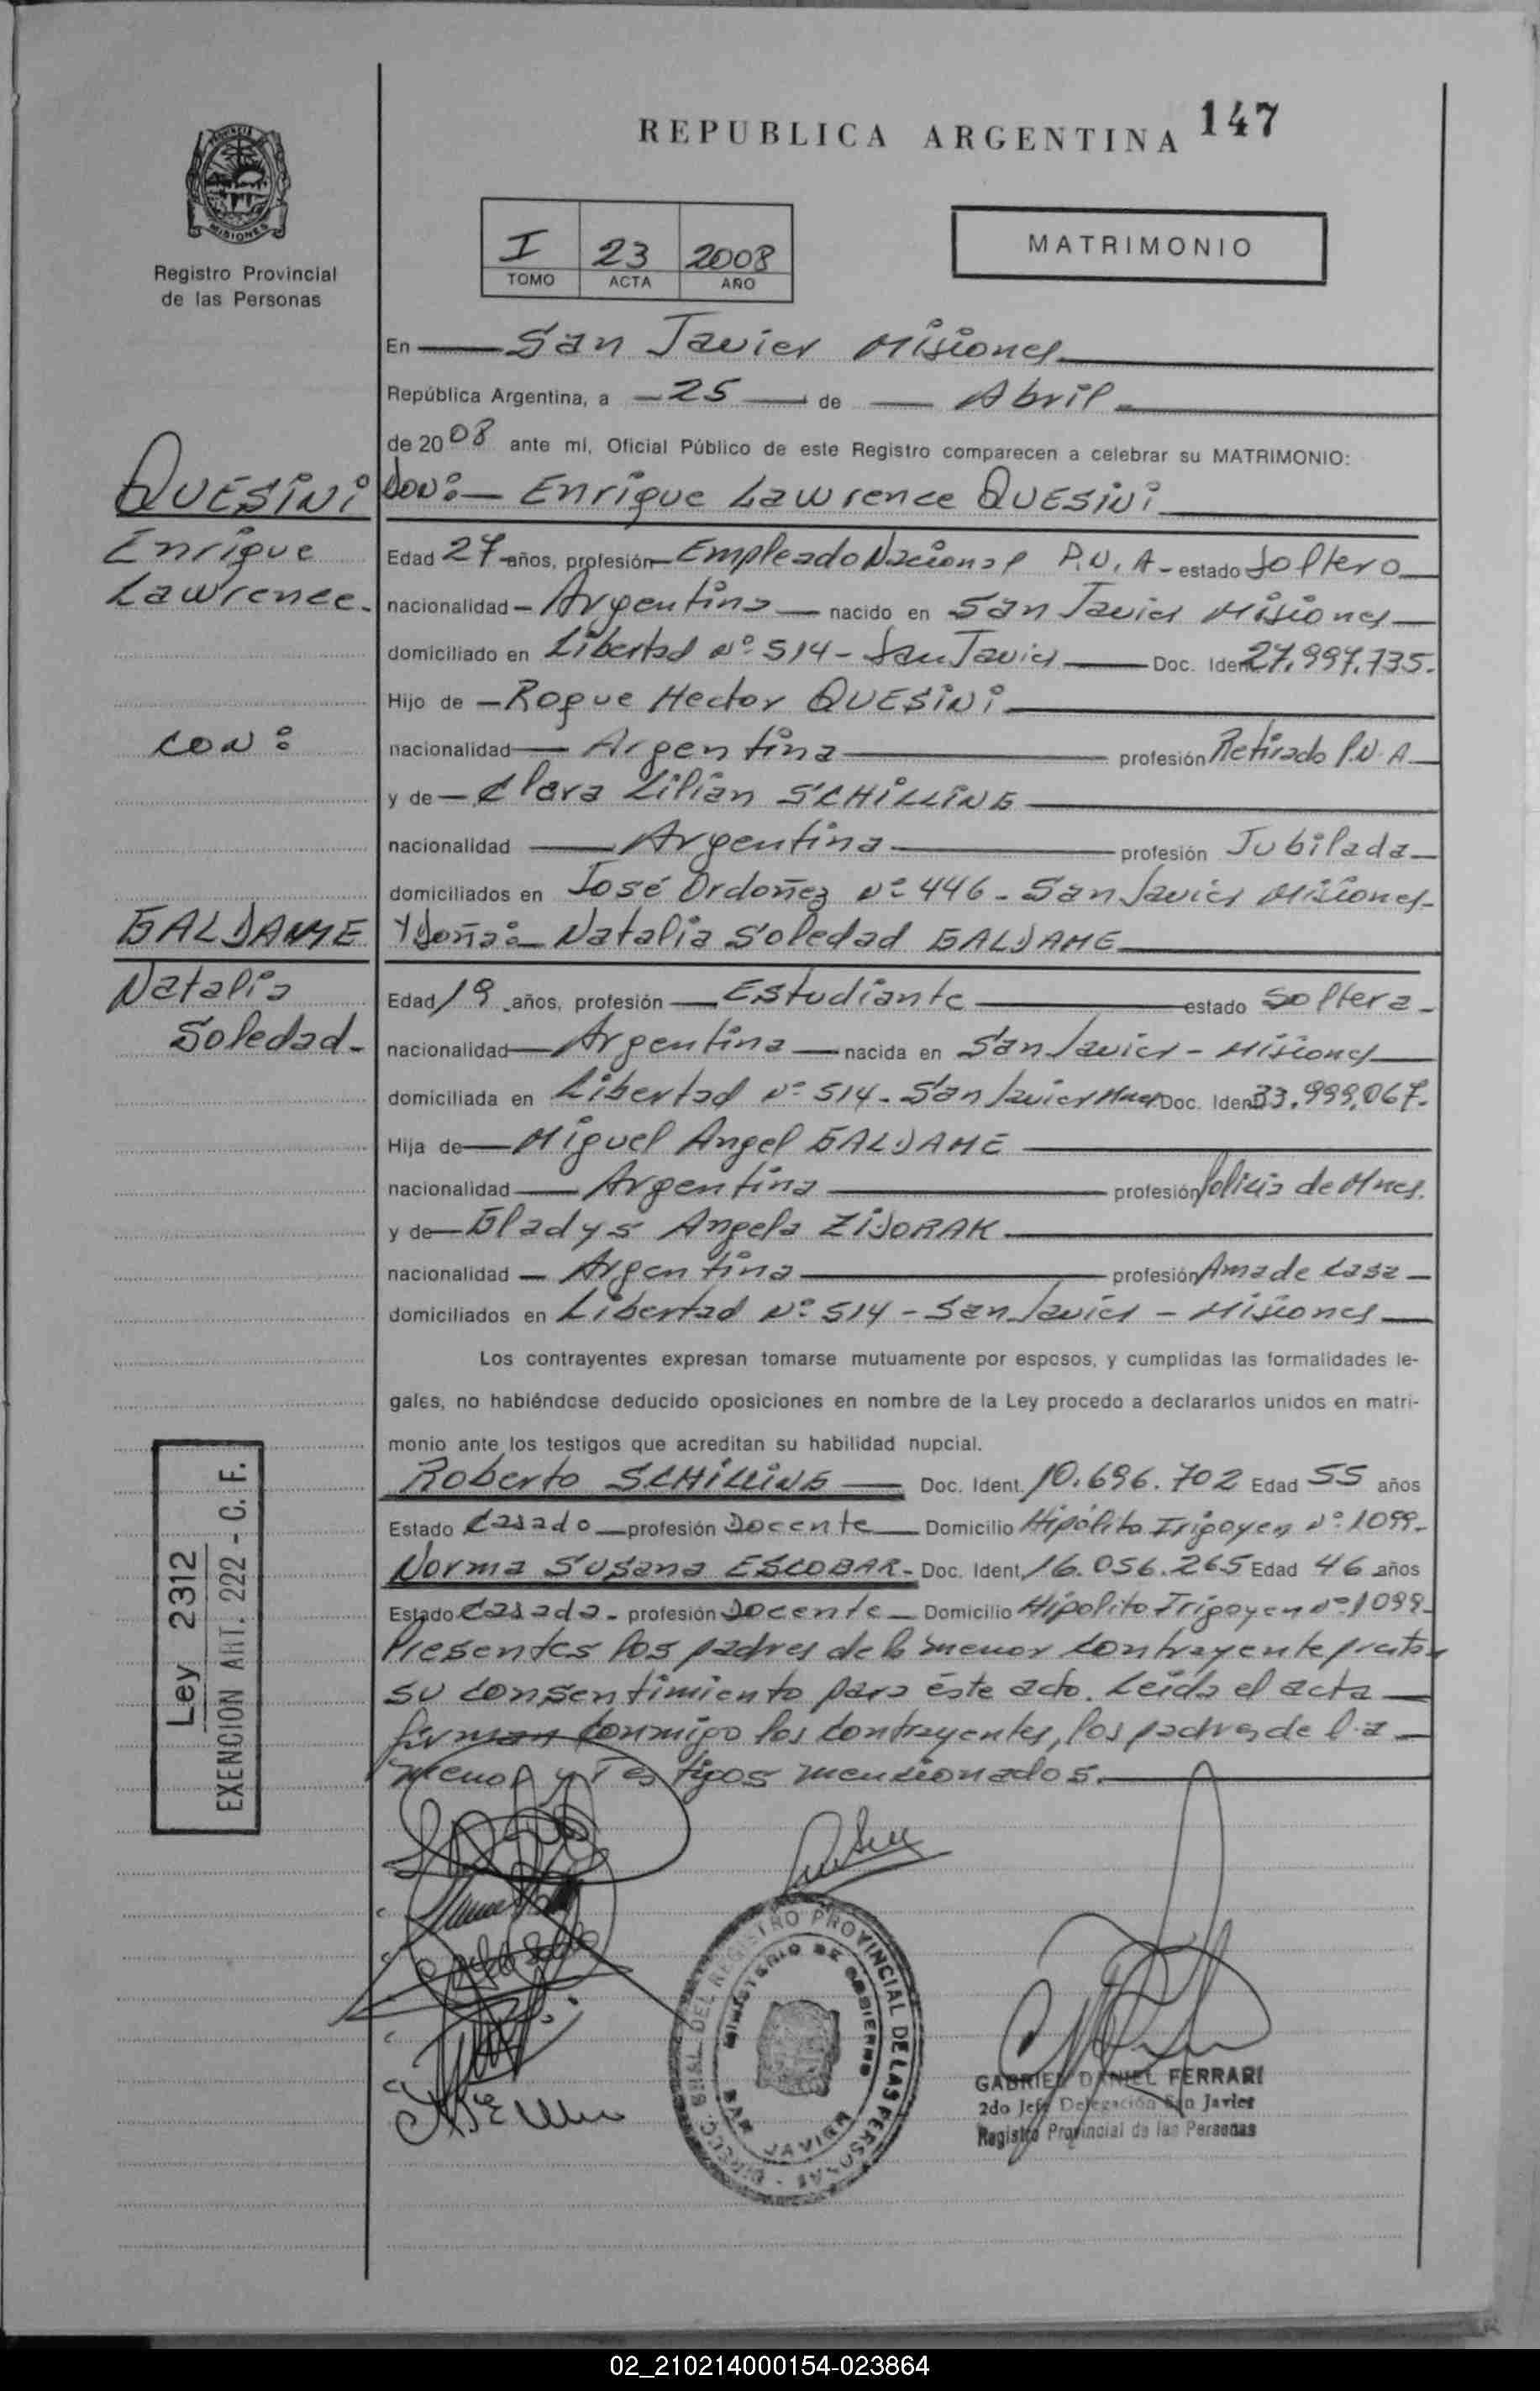 REPUBLICA ARGENTINA 147
MISIONES
Registro Provincial
de las Personas
I 23 2008
TOMO ACTA AÑO
MATRIMONIO
En San Javier Misiones
República Argentina, a -25- de Abril
de 2008 ante mí, Oficial Público de este Registro comparecen a celebrar su MATRIMONIO:
QUESINI
Enrique
Lawrence.
con:
GALDAME
Natalia
Soledad.
Don:- Enrique Lawrence QUESINI
Edad 27 años, profesión Empleado Nacional P.N.A- estado Soltero
nacionalidad - Argentina nacido en San Javier Misiones
domiciliado en Libertad Nº 514- San Javier Doc. Ident. 27.997.735.
Hijo de - Roque Hector QUESINI
nacionalidad Argentina profesión Retirado P.N.A
y de - Clara Lilian SCHILLING
nacionalidad Argentina profesión Jubilada
domiciliados en José Ordoñez Nº 446- San Javier Misiones-
Y Doña:- Natalia Soledad GALDAME
Edad 19 años, profesión Estudiante estado Soltera-
nacionalidad Argentina nacida en San Javier - Misiones
domiciliada en Libertad Nº 514- San Javier Mnes Doc. Ident. 33.999.067.
Hija de Miguel Angel GALDAME
nacionalidad Argentina profesión Policia de Mnes.
y de Gladys Angela ZIDORAK
nacionalidad - Argentina profesión Ama de casa
domiciliados en Libertad Nº 514 - San Javier - Misiones
Los contrayentes expresan tomarse mutuamente por esposos, y cumplidas las formalidades le-
gales, no habiéndose deducido oposiciones en nombre de la Ley procedo a declararlos unidos en matri-
monio ante los testigos que acreditan su habilidad nupcial.
Roberto SCHILLING Doc. Ident. 10.696.702 Edad 55 años
Estado Casado profesión Docente Domicilio Hipólito Irigoyen Nº 1099-
Norma Susana ESCOBAR- Doc. Ident. 16.056.265 Edad 46 años
Estado Casada- profesión Docente Domicilio Hipolito Irigoyen Nº 1099-
Presentes los padres de la menor contrayente prestan
su consentimiento para éste acto. Leida el acta
firman conmigo los contrayentes, los padres de la
menor y Testigos mencionados.
Ley 2312
EXENCION ART. 222 - C. F.
DIRECC. GRAL. DEL REGISTRO PROVINCIAL DE LAS PERSONAS
MINISTERIO DE GOBIERNO
SAN JAVIER
GABRIEL DANIEL FERRARI
2do Jefe Delegación San Javier
Registro Provincial de las Personas
02_210214000154-023864